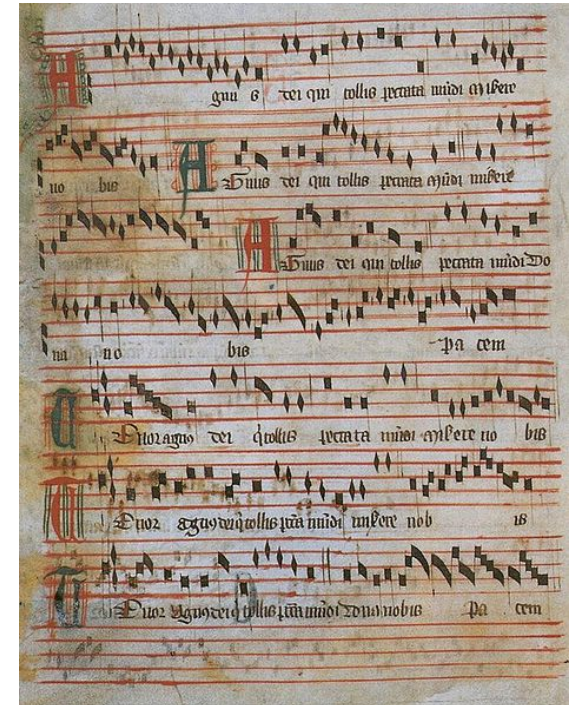 Agnus dei qui tollis peccata mūdi misere
no bis Agnus dei qui tollis peccata mūdi misere
Agnus dei qui tollis peccata mūdi Do
na no bis Pa cem
Tenor agnus dei q̇ tollis peccata mūdi misere no bis
Tenor agnus dei q̇ tollis pc̄ta mūdi misere nob is
Tenor Agnus dei q̇ tollis pc̄ta mūdi Dona nobis Pa cem